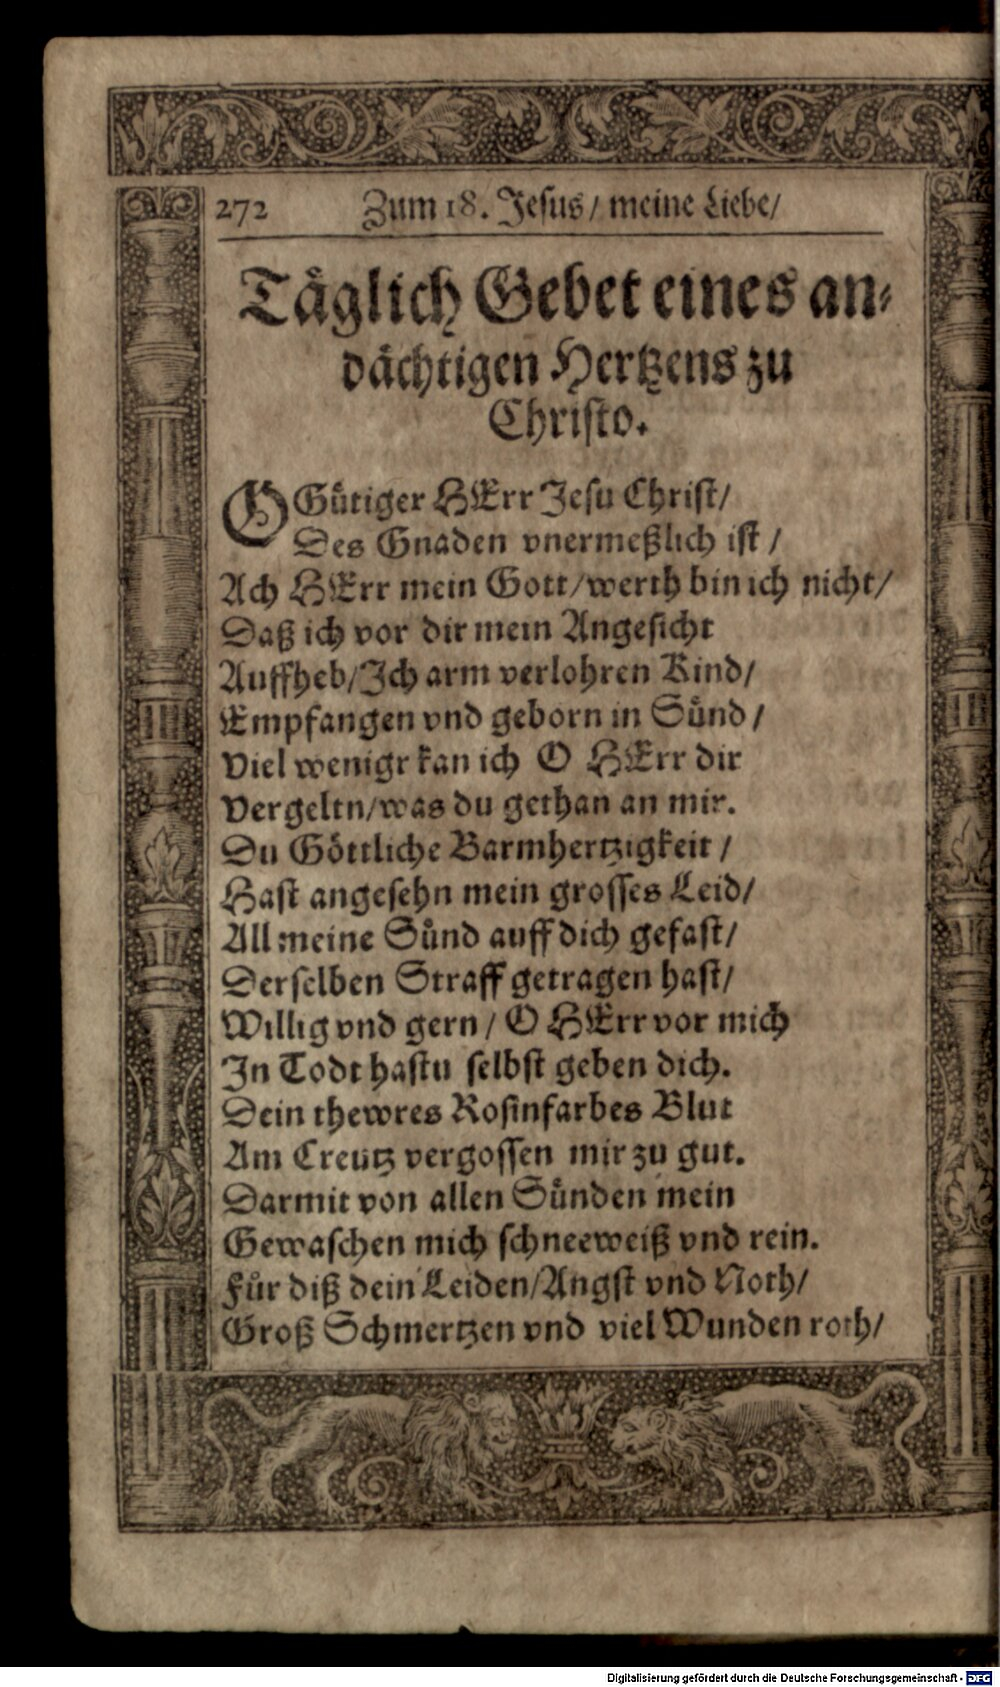 272 Zum 18. Jesus/ meine Liebe/
Täglich Gebet eines an-
dächtigen Hertzens zu
Christo.
O Gütiger HErr Jesu Christ/
Des Gnaden vnermeßlich ist/
Ach HErr mein Gott/werth bin ich nicht/
Daß ich vor dir mein Angesicht
Auffheb/Ich arm verlohren Kind/
Empfangen vnd geborn in Sünd/
Viel wenigr kan ich O HErr dir
Vergeltn/was du gethan an mir.
Du Göttliche Barmhertzigkeit/
Hast angesehn mein grosses Leid/
All meine Sünd auff dich gefast/
Derselben Straff getragen hast/
Willig vnd gern/ O HErr vor mich
In Todt hastu selbst geben dich.
Dein thewres Rosinfarbes Blut
Am Creutz vergossen mir zu gut.
Darmit von allen Sünden mein
Gewaschen mich schneeweiß vnd rein.
Für diß dein Leiden/Angst vnd Noth/
Groß Schmertzen vnd viel Wunden roth/
Digitalisierung gefördert durch die Deutsche Forschungsgemeinschaft - DFG